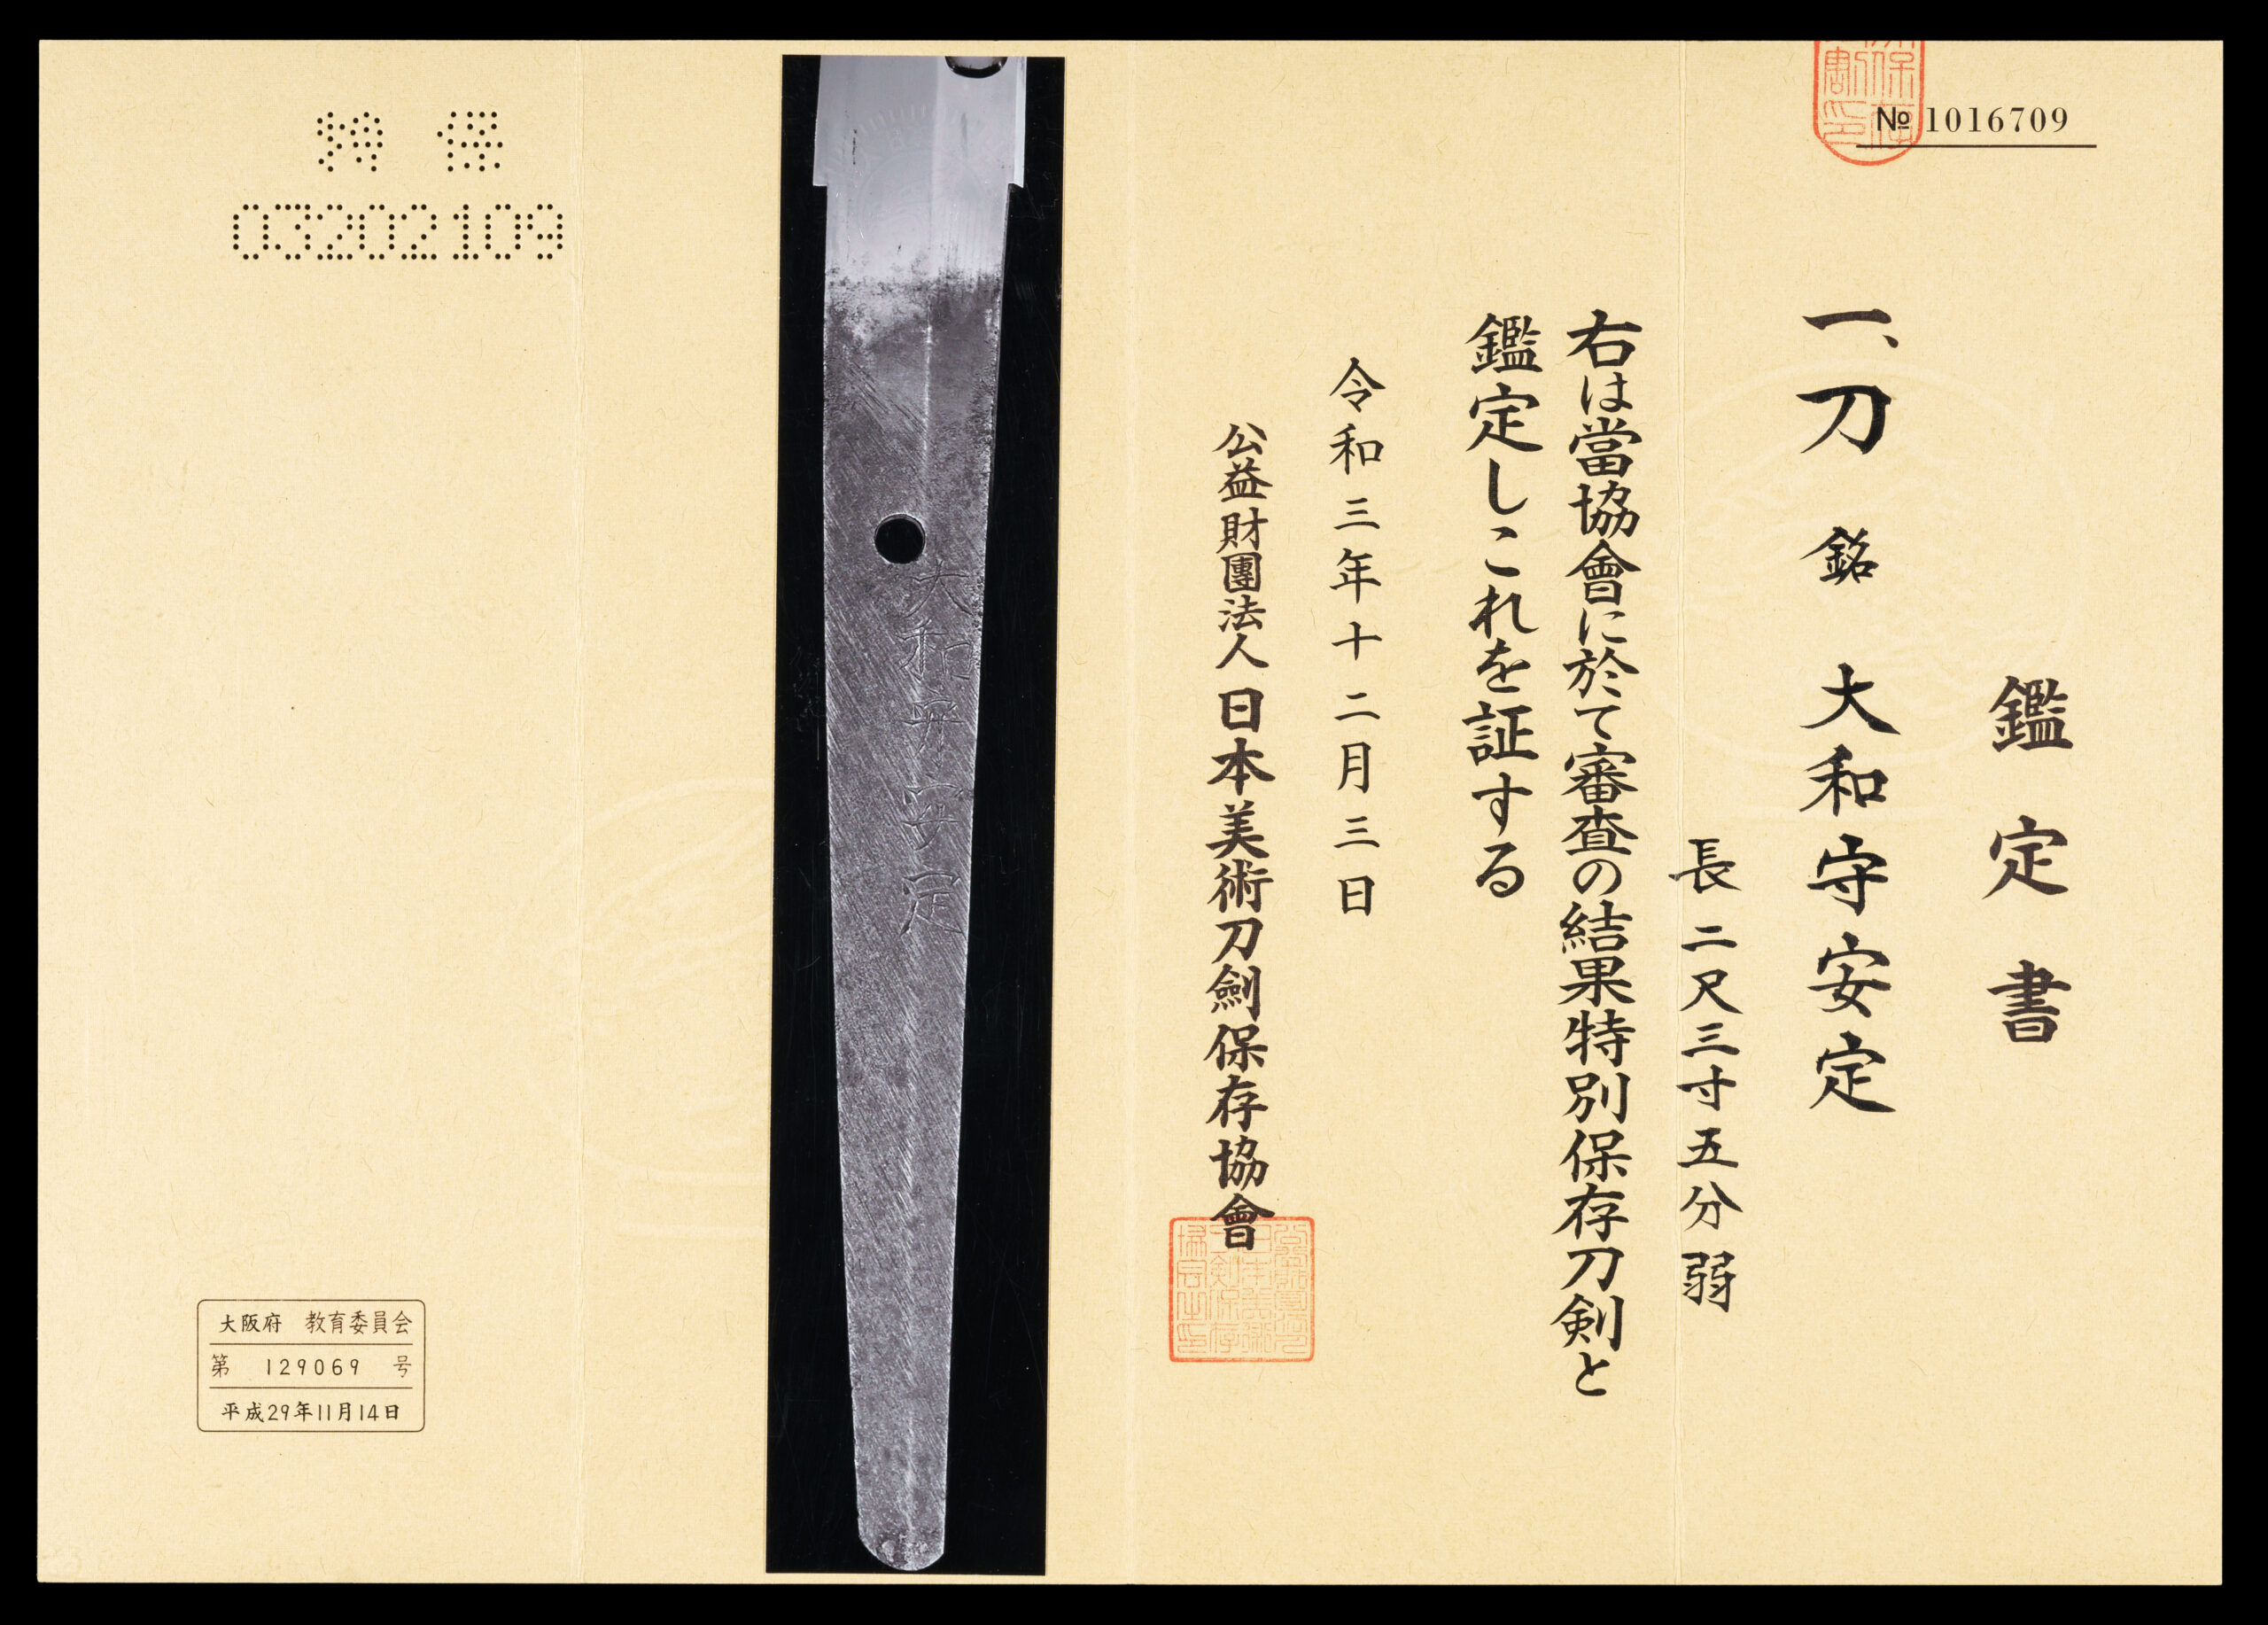 № 1016709
鑑定書
一、刀 銘 大和守安定
長二尺三寸五分弱
右は當協會に於て審査の結果特別保存刀剣と
鑑定しこれを証する
令和三年十二月三日
公益財團法人日本美術刀劍保存協會
大和守安定
特保
03202109
大阪府 教育委員会
第 129069 号
平成29年11月14日